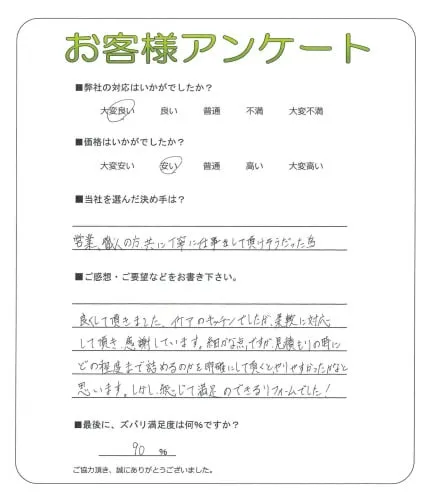 お客様アンケート
■弊社の対応はいかがでしたか?
大変良い 良い 普通 不満 大変不満
■価格はいかがでしたか?
大変安い 安い 普通 高い 大変高い
■当社を選んだ決め手は?
営業、職人の方共に丁寧に仕事をして頂けそうだった為
■ご感想・ご要望などをお書き下さい。
良くして頂きました。イケアのキッチンでしたが、柔軟に対応
して頂き、感謝しています。細かな点ですが、見積もりの時に
どの程度まで詰めるのかを明確にして頂くとやりやすかったかなと
思います。しかし、総じて満足のできるリフォームでした!
■最後に、ズバリ満足度は何%ですか?
90 %
ご協力頂き、誠にありがとうございました。